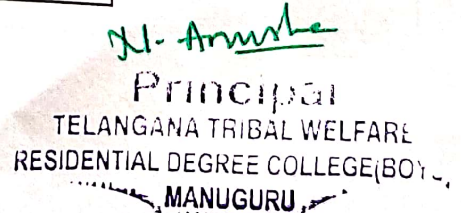 Principal
TELANGANA TRIBAL WELFARE
RESIDENTIAL DEGREE COLLEGE(BOYS)
MANUGURU